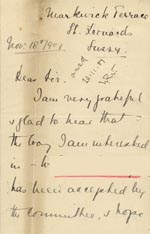 Markwick Terrace
St. Leonards
Sussex
Nov: 18th 1901
ansd
20/11/01
Dear Sir.
I am very grateful
& glad to hear that the
boy I am interested
in -
has been accepted by
the Committee, & hope